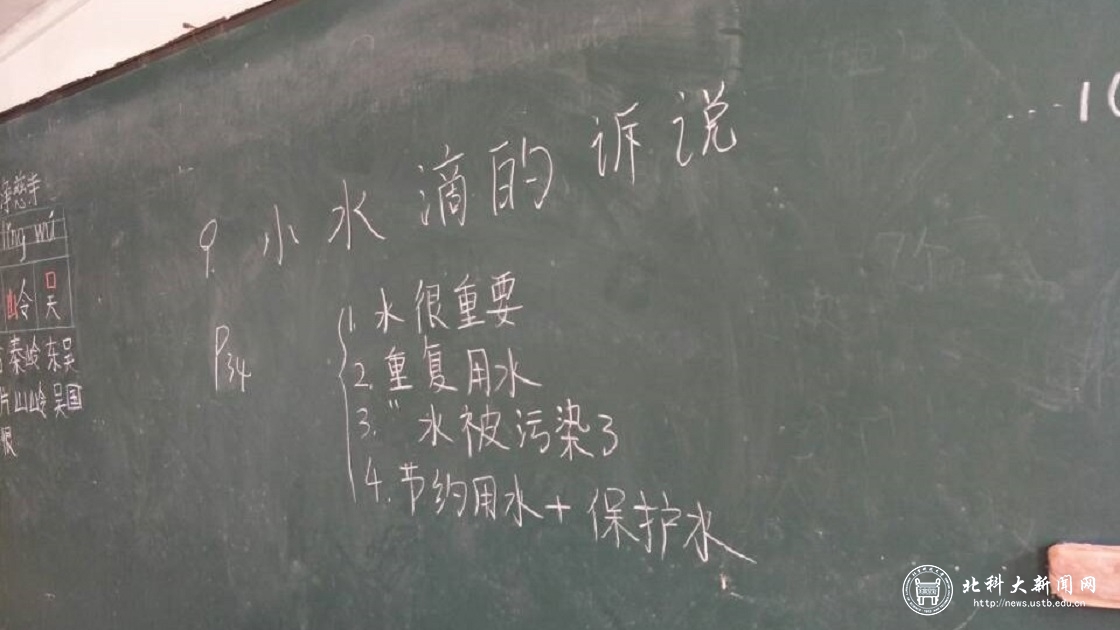 9. 小水滴的诉说
P34
1. 水很重要
2. 重复用水
3. " 水被污染了
4. 节约用水 + 保护水
慈寺
líng wú
岭 吴
秦岭 东吴
片山岭 吴国
恨
北科大新闻网
http://news.ustb.edu.cn